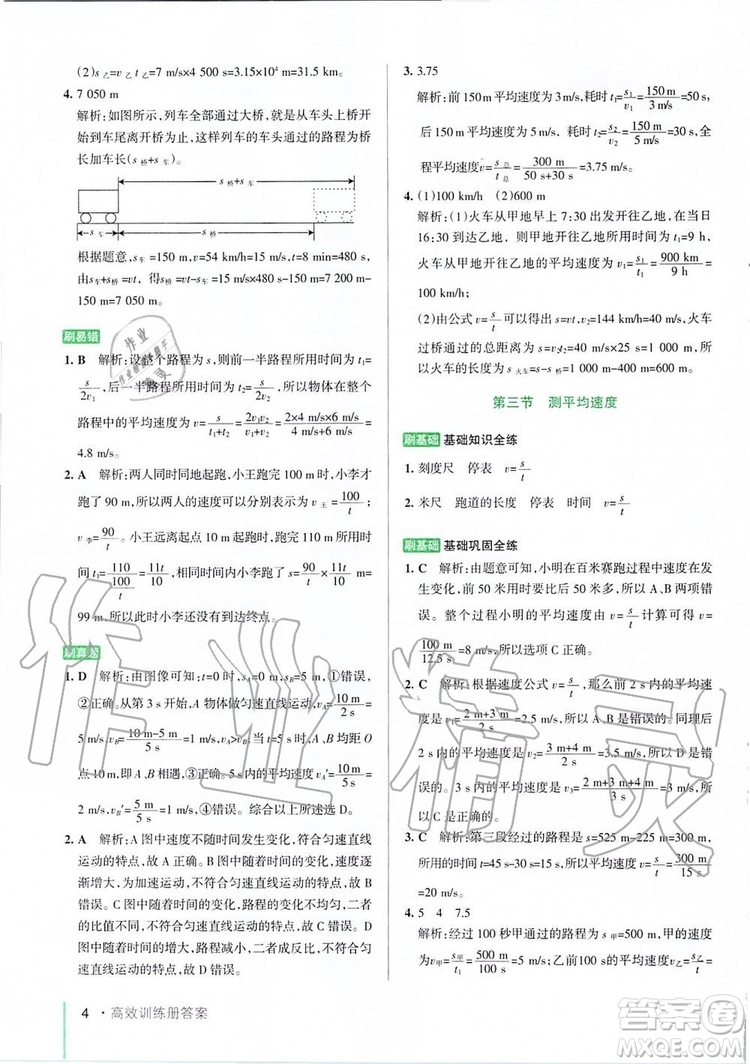 (2)s乙=v乙t乙=7 m/s×4 500 s=3.15×10⁴ m=31.5 km
4. 7 050 m
解析:如图所示,列车全部通过大桥,就是从车头开始
到车尾离开桥为止,这样列车的车头通过的路程为桥
长加车长(s桥+s车)
s桥+s车
s车
s桥
s车
根据题意,s车=150 m,v=54 km/h=15 m/s,t=8 min=480 s,
由s车+s桥=vt 得s桥=vt-s车=15 m/s×480 s-150 m=7 200 m-
150 m=7 050 m
刷易错
1. B 解析:设整个路程为s,则前一半路程所用时间t₁=
s/2v₁,后一半路程所用时间t₂=s/2v₂,所以物体在整个
路程中的平均速度v=s/(t₁+t₂)=2v₁v₂/(v₁+v₂)=(2×4 m/s×6 m/s)/(4 m/s+6 m/s)=
4.8 m/s。
2. A 解析:两人同时同地起跑,小王跑100 m时小李才
跑了90 m,所以两人的速度可以分别表示为v王=100/t,
v李=90/t。小王远离起点10 m起跑,小王到达终点所用时
间t₁=110/(100/t)=110/100 t,此时小李的路程s=110/100 t×90/t=
99 m,所以此时小李还没有到达终点。
刷真题
1. D 解析:由图像可知:t=0时,sA=0 m,sB=5 m,①错误,
②正确。从第3 s开始,A物体做匀速直线运动,vA=10 m/2 s=
5 m/s,vB=(10 m-5 m)/5 s=1 m/s,vA>vB,③错误。5 s末,A、B均距O
点10 m,即A、B相遇,③正确。前5 s内,vA′=10 m/5 s=
2 m/s,vB′=5 m/5 s=1 m/s,④错误。综合以上所述,故选D。
2. A 解析:A图中速度不随时间发生变化,符合匀速直线
运动的特点,故A正确。B图中随着时间的增大,速度逐
渐增大,不符合匀速直线运动的特点,故B错误。C图中
随着时间的增大,路程不变,故速度为零,路程与时间
的比值不同,不符合匀速直线运动的特点,故C错误。D图中随着
时间的增大,路程减小,二者成反比,不符合匀
速直线运动的特点,故D错误。
3. 3.75
解析:前150 m平均速度为3 m/s,耗时t₁=s₁/v₁=150 m/3 m/s=50 s,
后150 m平均速度为5 m/s,耗时t₂=s₂/v₂=150 m/5 m/s=30 s,全
程平均速度为v=s总/t总=300 m/(50 s+30 s)=3.75 m/s。
4. (1)100 km/h (2)600 m
解析:(1)火车从甲地早上7:30出发开往乙地,在当日
16:30到达乙地,所以火车从甲地开往乙地的时间t₁=9 h,
火车从甲地开往乙地的平均速度为v=s₁/t₁=900 km/9 h=
100 km/h。
(2)由公式v=s/t可以得出s=vt,v₂=144 km/h=40 m/s,火车
过桥通过的总距离为s=v₂t₂=40 m/s×25 s=1 000 m,
所以火车的长度为s火车=s-s桥=1 000 m-400 m=600 m。
第三节 测平均速度
刷基础 基础知识全练
1. 刻度尺 停表 v=s/t
2. 米尺 跑道的长度 停表 时间 v=s/t
刷基础 基础巩固全练
1. C 解析:由题意可知,小明在百米赛跑过程中速度在
发生变化,前50米用时要比后50米少,所以A、B、D都
错误。整个过程小明的平均速度由v=s/t计算可得v=
s/t=100 m/12.5 s=8 m/s,所以C正确。
2. C 解析:根据速度公式v=s/t,那么前2 s内的平均速
度v₁=(2 m+3 m)/2 s=2.5 m/s,所以A、B是错误的。同理后
2 s内的平均速度v₂=(3 m+4 m)/2 s=3.5 m/s,所以D是错误
的。3 s内的平均速度v₃=(2 m+3 m+4 m)/3 s=3 m/s,
所以C正确。
3. C 解析:第三段经过的路程是s=525 m-225 m=300 m,
所用的时间t=45 s-30 s=15 s,平均速度v=s/t=300 m/15 s
=20 m/s。
4. 5 4 7.5
解析:经过100秒甲通过的路程s甲=500 m,所以速度
v甲=s甲/t₁=500 m/100 s=5 m/s,经过100 s乙通过的路程
4 · 高效训练册答案
作业精灵
答案圈
MXQE.COM